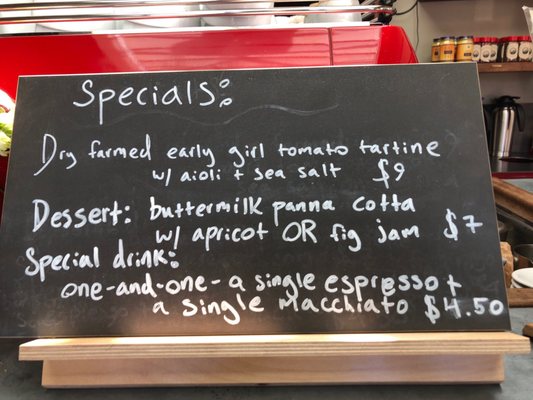 Specials:
Dry farmed early girl tomato tartine
w/ aioli + sea salt $9
Dessert: buttermilk panna cotta
w/ apricot OR fig jam $7
Special drink:
one-and-one- a single espresso +
a single macchiato $4.50